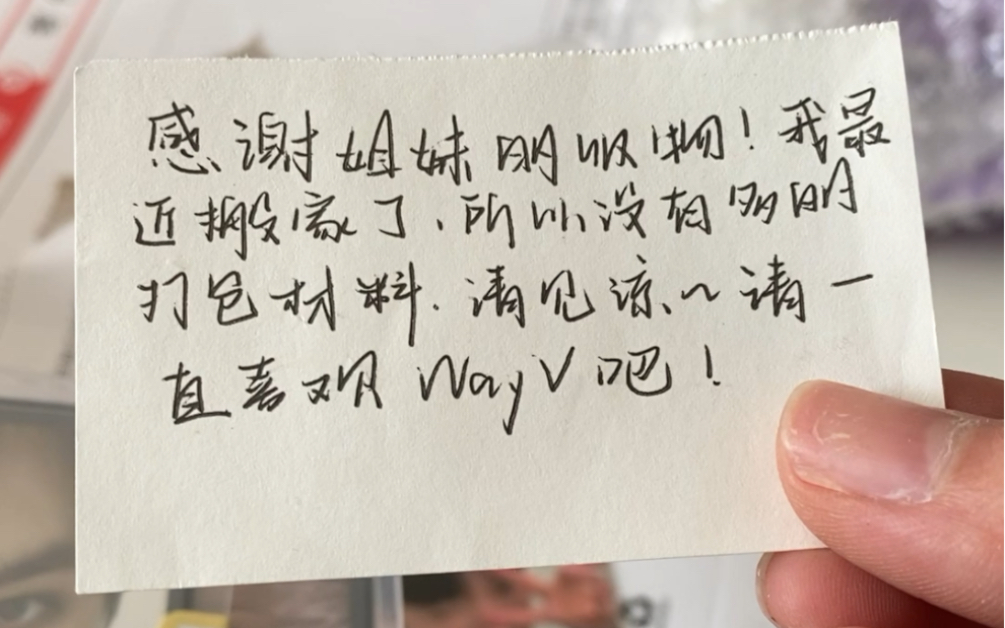 感谢姐妹的收物！我最
近搬家了、所以没有多的
打包材料.请见谅～请一
直喜欢 WayV吧！